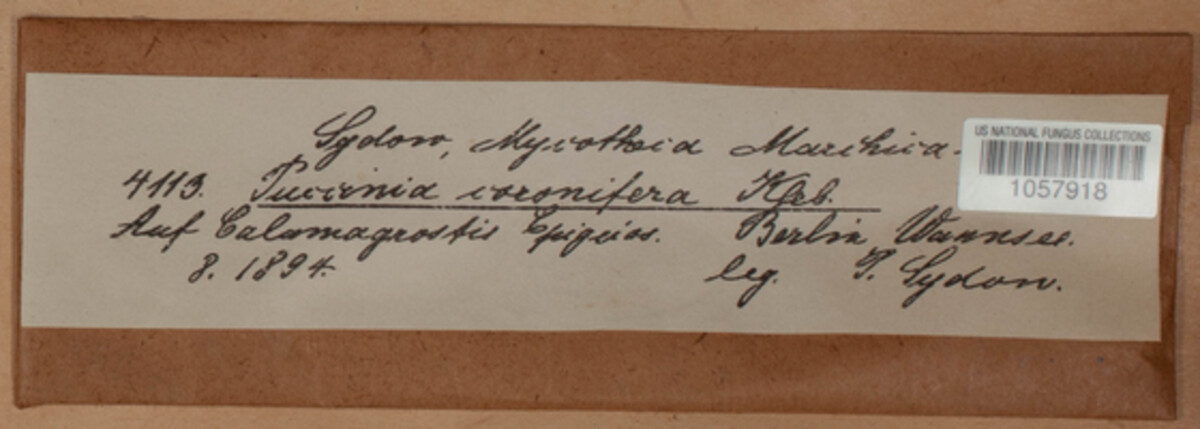 Sydow, Mycotheca Marchica.
US NATIONAL FUNGUS COLLECTIONS
1057918
4113. Puccinia coronifera Kleb.
Auf Calamagrostis Epigeios. Berlin, Wannsee.
8. 1894. leg. P. Sydow.